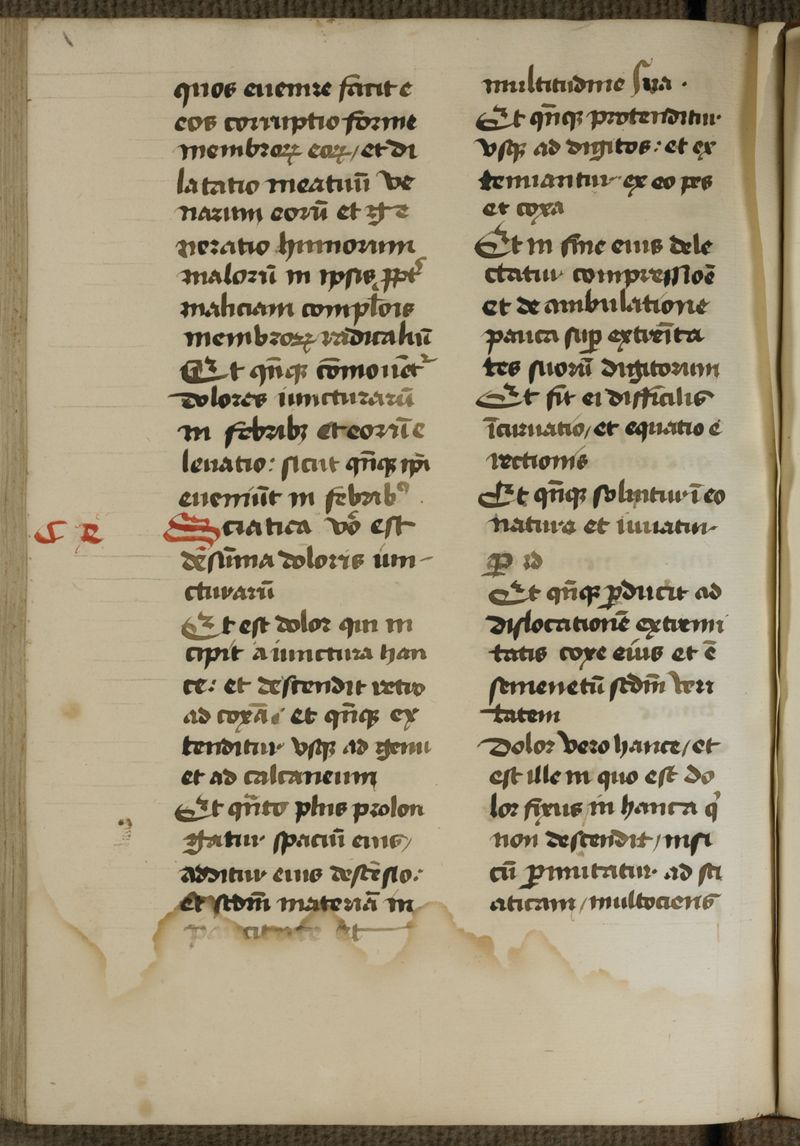 quos euenire facit e
eos corruptio forme
membroꝝ eoꝝ / et di
latatio meatuū ve
narum eorū et ge
neratio humorum
malorū in ipsis ꝓpt᷒
maliciam complōis
membroꝝ radicaliū
Et qn̄qꝫ cōmouēt᷒
dolores iuncturarū
in febribꝫ et eorū e
leuatio: sicut qn̄qꝫ ip̄i
eueniūt in febribꝰ.
S R Sciatica vō est
de sūma doloris iun-
cturarū
Et est dolor qui in
cipit a iunctura han
ce: et descendit retro
ad coxā: et qn̄qꝫ ex
tenditur vsqꝫ ad genu
et ad calcaneum
Et qn̄to plus prolon
gatur spaciū eius /
additur eius descēsio:
et scdm̄ materiā in
paucitate et
multitudine sua.
Et qn̄qꝫ protenditur
vsqꝫ ad digitos: et ex
tenuiantur ex eo pes
et coxa
Et in fine eius dele
ctatur compressiōe
et de ambulatione
pauca suꝑ extremita
tes suorū digitorum
Et fit ei difficilis
īcuruatio / et equatio e
rectionis
Et qn̄qꝫ soluitur ī eo
natura et iuuatur
ꝑ id
Et qn̄qꝫ ꝑducit ad
dislocationē extremi
tatis coxe eius et ē
scdm̄ veri
tatem
Dolor vero hance / et
est ille in quo est do
lor fixus in hanca qͥ
non descendit / nisi
cū ꝑmutatur ad sci
aticam / multociens